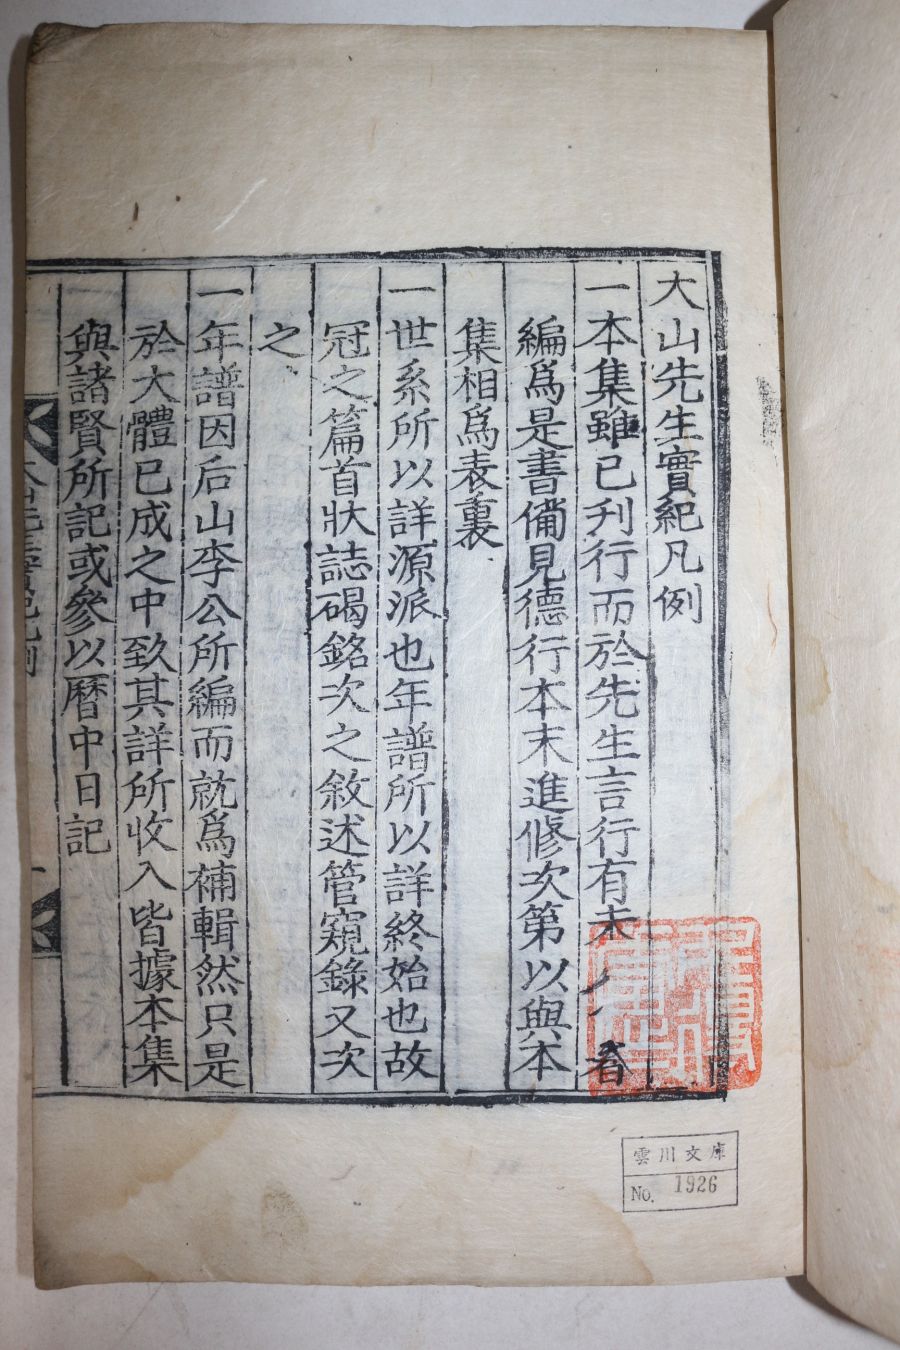 大山先生實紀凡例
一本集雖已刋行而於先生言行有未 者
編爲是書備見德行本末進修次第以與本
集相爲表裏
一世系所以詳源派也年譜所以詳終始也故
冠之篇首狀誌碣銘次之敘述管窺錄又次
之
一年譜因后山李公所編而就爲補輯然只是
於大體已成之中致其詳所收入皆據本集
與諸賢所記或參以曆中日記
雲川文庫
No. 1926